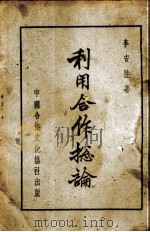 李安陸著
利用合作總論
中國合作文化協社出版